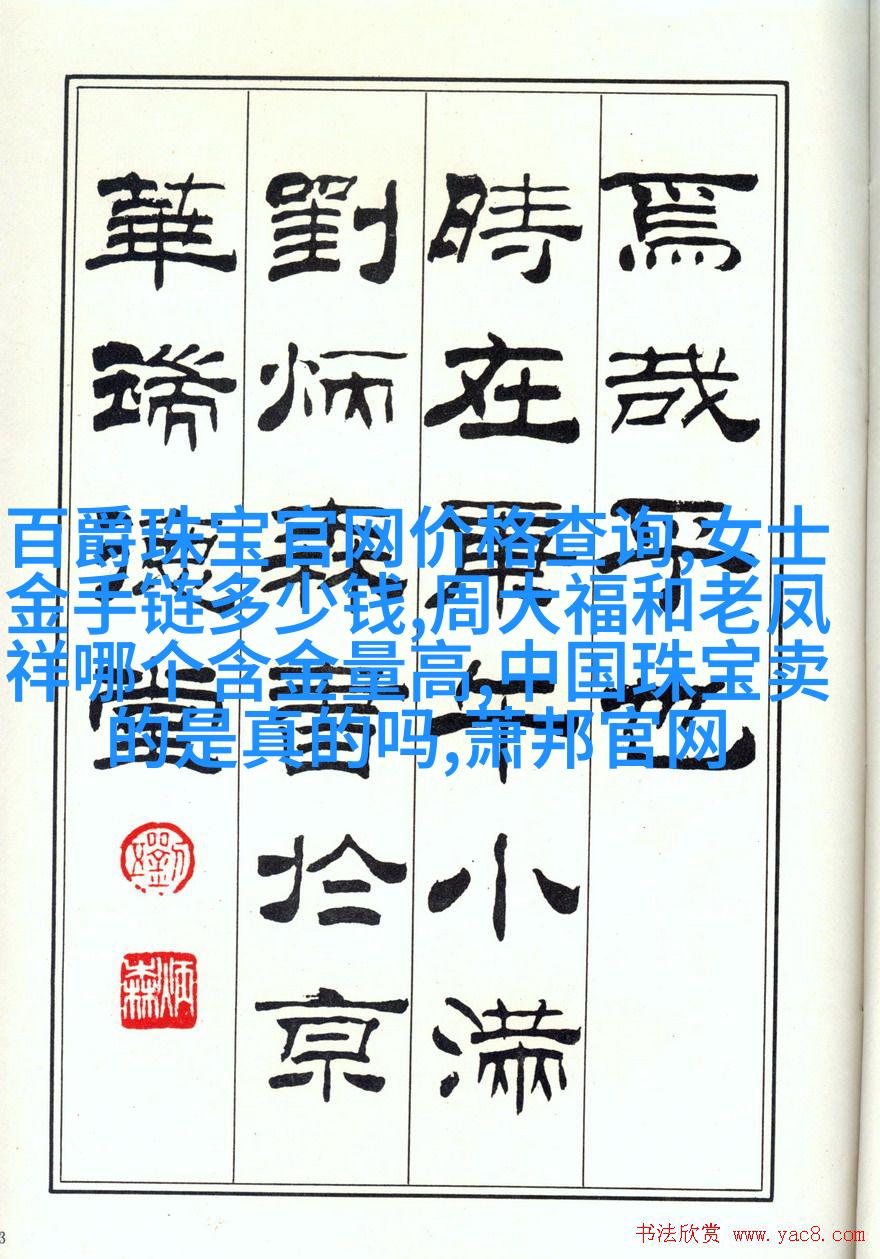 百爵珠宝官网价格查询,女士
金手链多少钱,周大福和老凤
祥哪个含金量高,中国珠宝卖
的是真的吗,萧邦官网
焉哉乎也
時在庚午小滿
劉炳森書於京
華
炳森
书法欣赏 www.yac8.com
3